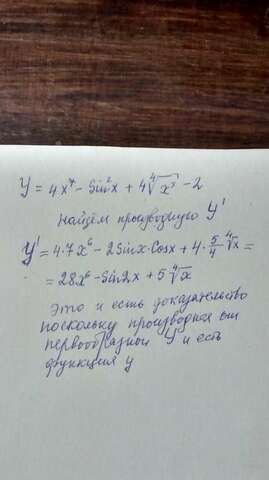 y = 4x⁷ - Sin²x + 4∜x⁵ - 2
Найдём производную y'
y' = 4·7x⁶ - 2Sinx·Cosx + 4·5/4 ∜x =
= 28x⁶ - Sin2x + 5∜x
Это и есть доказательство
поскольку производная от
первообразной У и есть
функция у